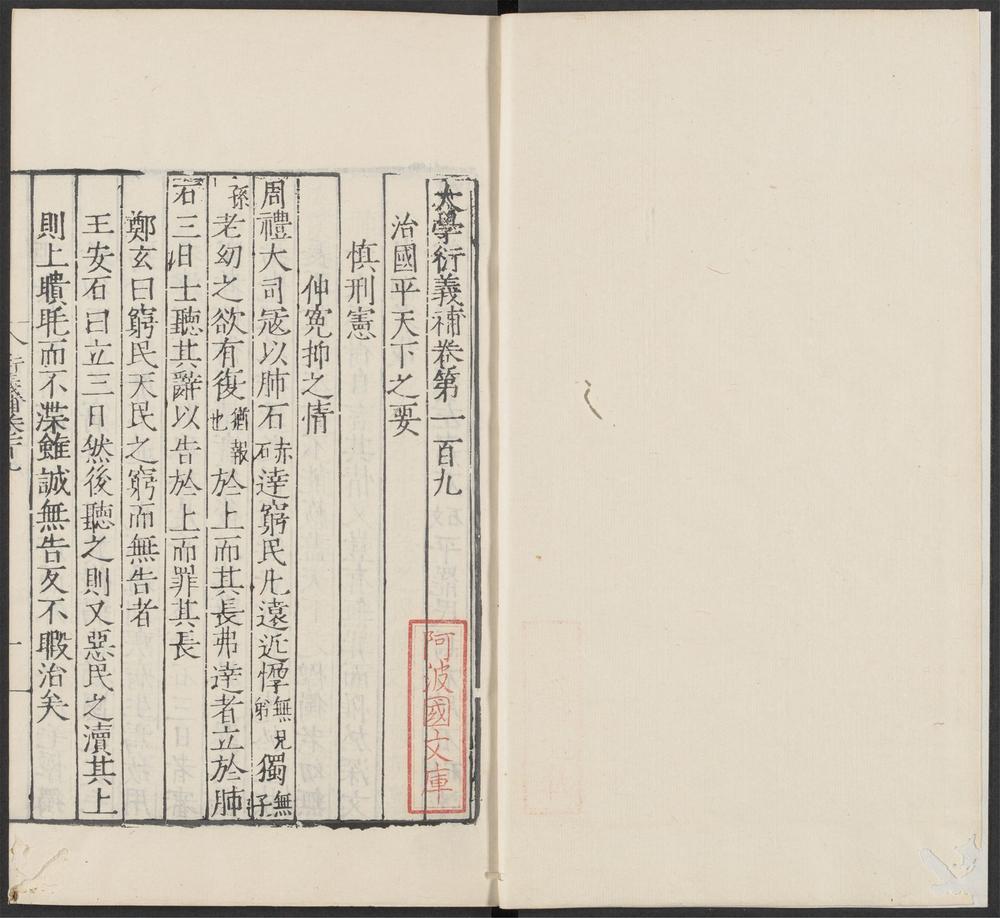 大學衍義補卷第一百九
治國平天下之要
慎刑憲
伸冤抑之情
周禮大司寇以肺石赤石達窮民凡遠近惸無兄弟獨無子
孫老幼之欲有復猶報也於上而其長弗達者立於肺
石三日士聽其辭以告於上而罪其長
鄭玄曰窮民天民之窮而無告者
王安石曰立三日然後聽之則又惡民之瀆其上
則上聵眊而不渫雖誠無告亦不暇治矣
阿波國文庫